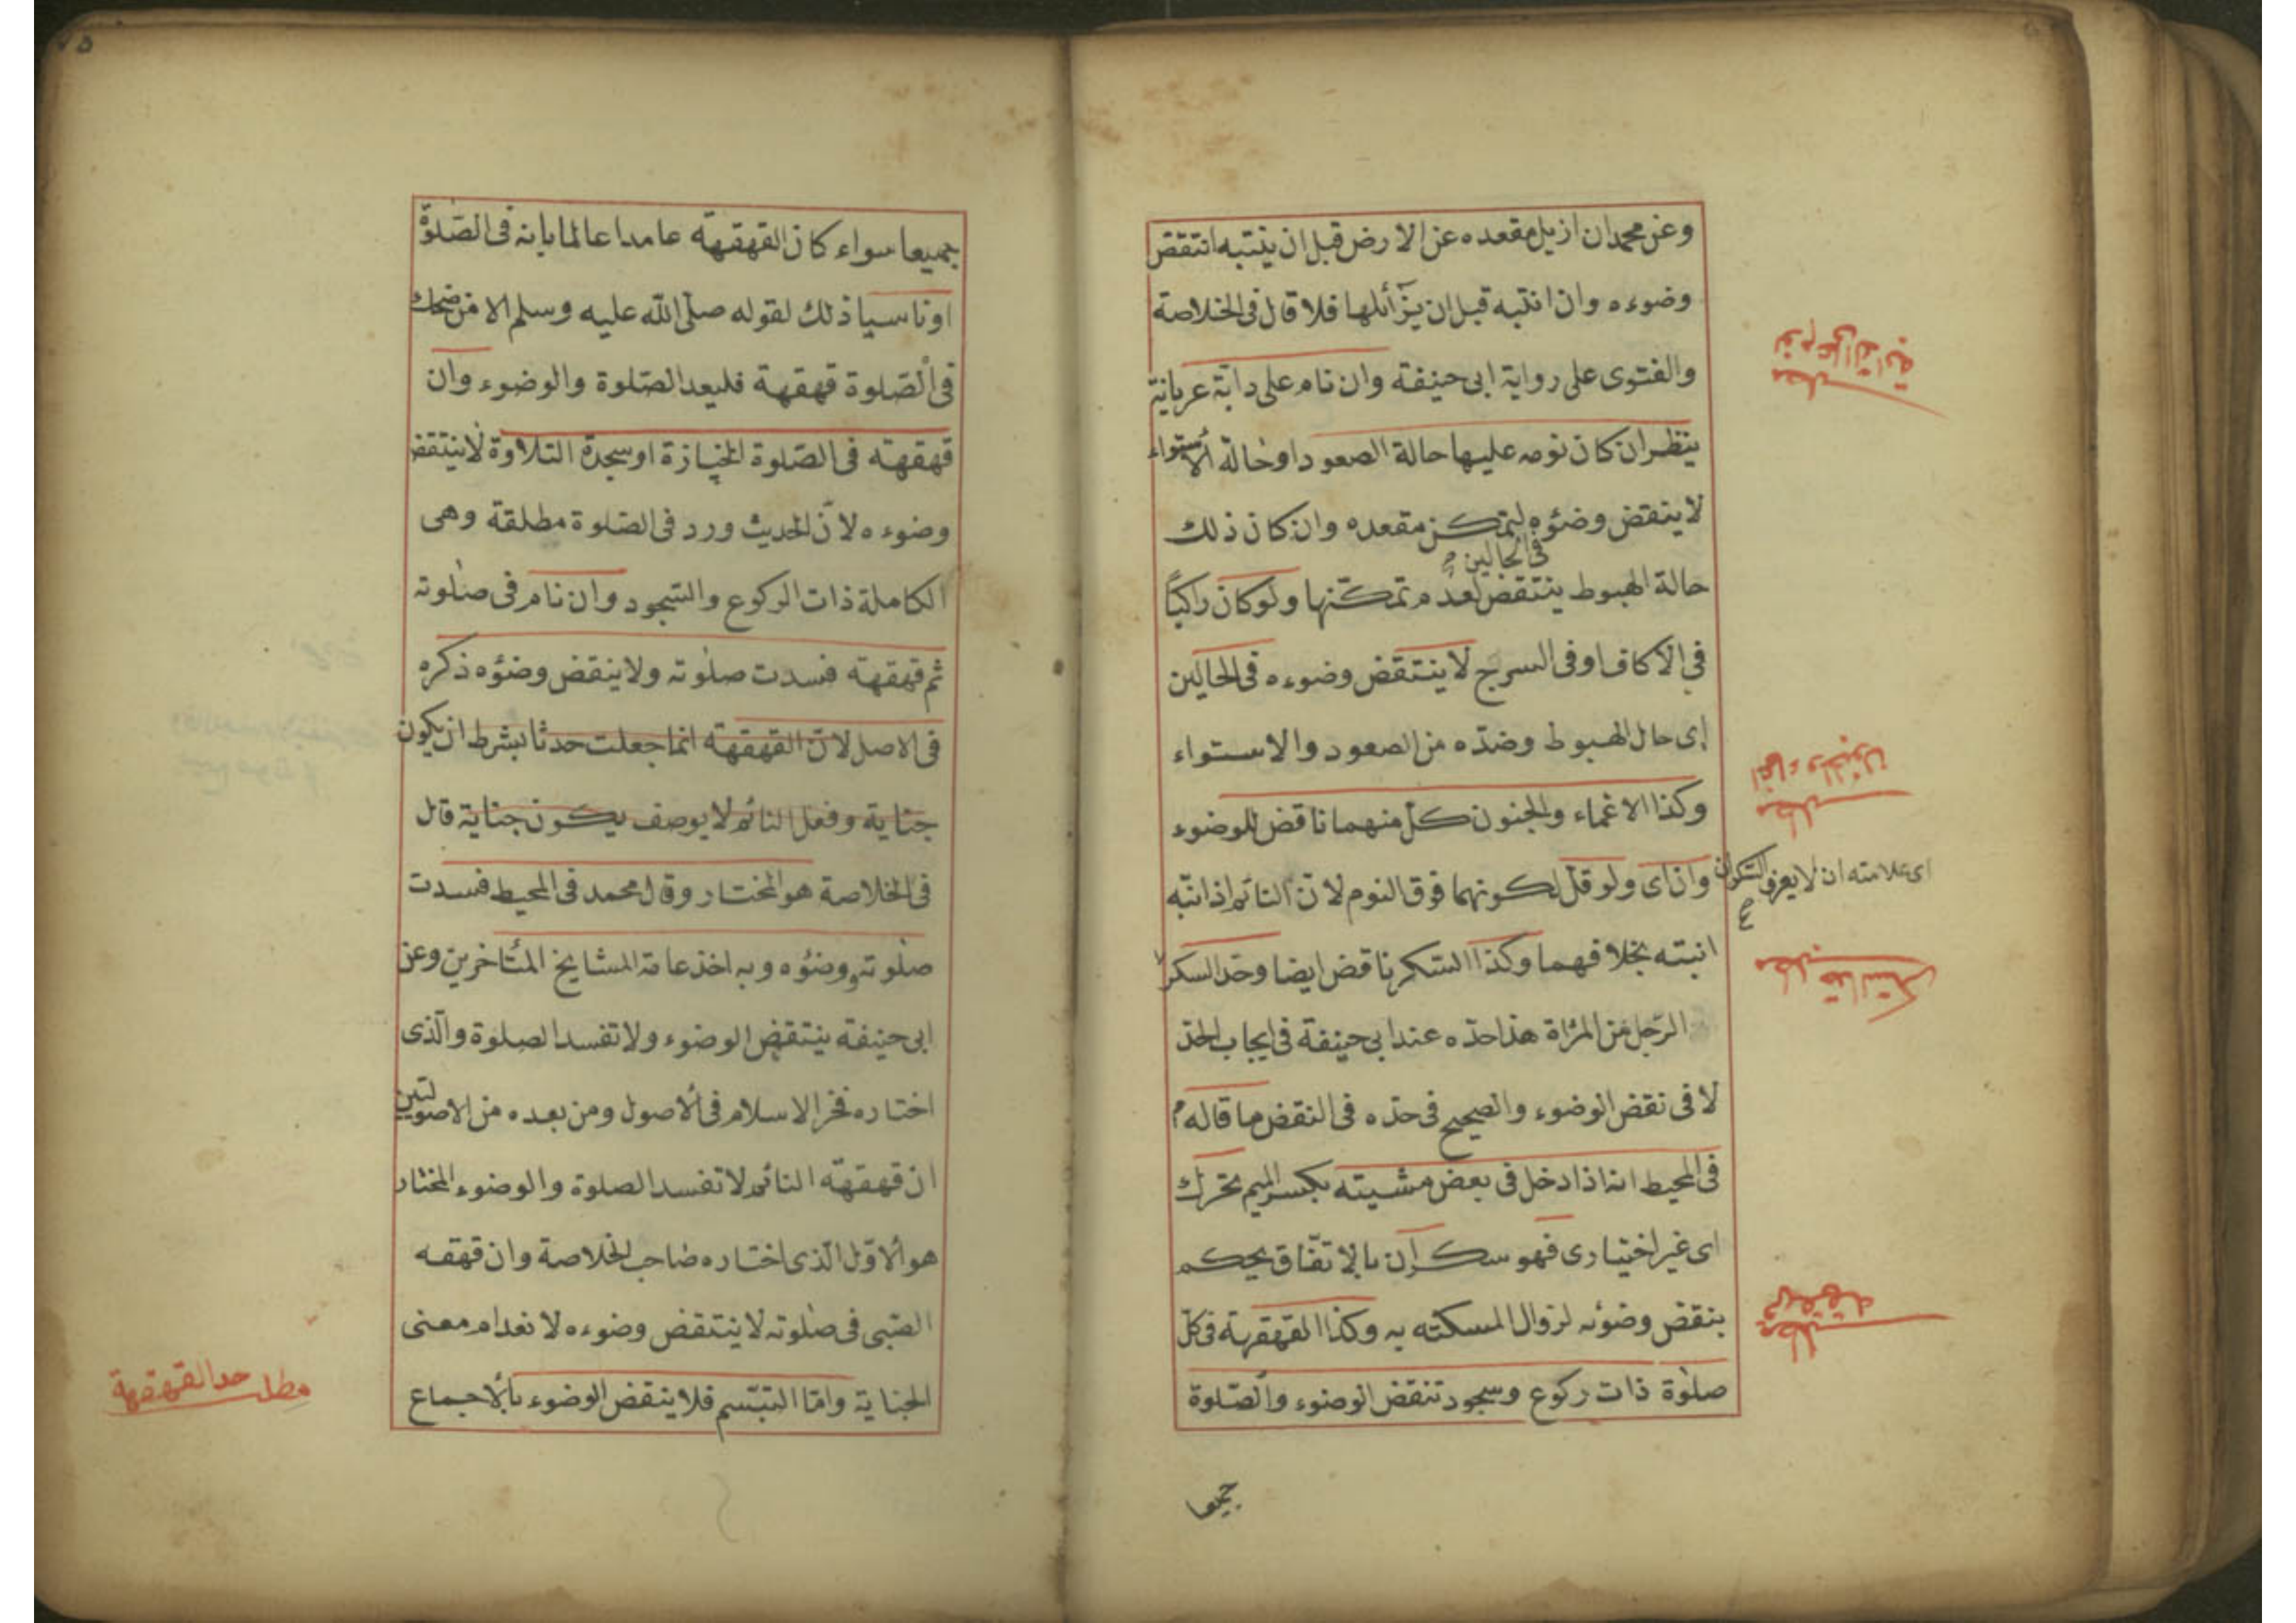 وعن محمد ان ازيل مقعده عن الارض قبل ان ينتبه انتقض
وضوءه وان انتبه قبل ان يزائلها فلا قال فى الخلاصة
والفتوى على رواية ابى حنيفة وان نام على دابة عريانة
ينظر ان كان نومه عليها حالة الصعود او حالة الاستواء
لا ينتقض وضوءه لتمكن مقعده وان كان ذلك
فى الحالين
حالة الهبوط ينتقض لعدم تمكنها ولو كان راكبًا
فى الاكاف او فى السرج لا ينتقض وضوءه فى الحالين
اى حال الهبوط وضدّه من الصعود والاستواء
وكذا الاغماء والجنون كلّ منهما ناقض للوضوء
وان اى ولو قلّ لكونهما فوق النوم لانّ النائم اذا نبّه
انبته بخلافهما وكذا السكر ناقض ايضا وحد السكر
الرّجل من المرأة هذا حدّه عند ابى حنيفة فى ايجاب الحدّ
لا فى نقض الوضوء والصحيح فى حدّه فى النقض ما قاله
فى المحيط انه اذا دخل فى بعض مشيته بكسر الميم تحرك
اى غير اختيارى فهو سكران بالاتفاق يحكم
بنقض وضوئه لزوال المسكته به وكذا القهقهة فى كلّ
صلوة ذات ركوع وسجود تنقض الوضوء والصّلوة
جميعا
نوم على الدابة
مطلب
اغماء والجنون
مطلب
اى علامته ان لا يعرف السكران
مطلب حد السكر
قهقهه
مطلب
جميعا سواء كان القهقهة عامدا عالما بانه فى الصّلوة
او ناسيا ذلك لقوله صلّى اللّه عليه وسلم الا من ضحك
فى الصّلوة قهقهة فليعد الصّلوة والوضوء وان
قهقهه فى الصّلوة الجنازة او سجدة التلاوة لا ينتقض
وضوءه لانّ الحديث ورد فى الصّلوة مطلقة وهى
الكاملة ذات الركوع والسّجود وان نام فى صلوته
ثم قهقهه فسدت صلوته ولا ينقض وضوءه ذكره
فى الاصل لانّ القهقهة انما جعلت حدثا بشرط ان يكون
جناية وفعل النائم لا يوصف يكون جناية قال
فى الخلاصة هو المختار وقال محمد فى المحيط فسدت
صلوته ووضوءه وبه اخذ عامة المشايخ المتأخرين وعن
ابى حنيفة ينتقض الوضوء ولا تفسد الصلوة والّذى
اختاره فخر الاسلام فى الاصول ومن بعده من الاصوليين
ان قهقهة النائم لا تفسد الصلوة والوضوء المختار
هو الاوّل الّذى اختاره صاحب الخلاصة وان قهقه
الصّبى فى صلوته لا ينتقض وضوءه لانعدام معنى
الجناية وامّا التبسّم فلا ينقض الوضوء بالاجماع
مطلب حد القهقهة